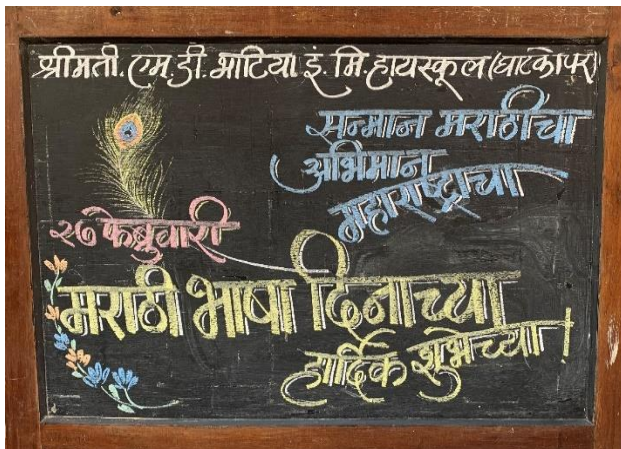 श्रीमती. एम. डी. भाटिया इं. मि. हायस्कूल (घाटकोपर)
सन्मान मराठीचा
अभिमान
महाराष्ट्राचा
२७ फेब्रुवारी
मराठी भाषा दिनाच्या
हार्दिक शुभेच्छा!